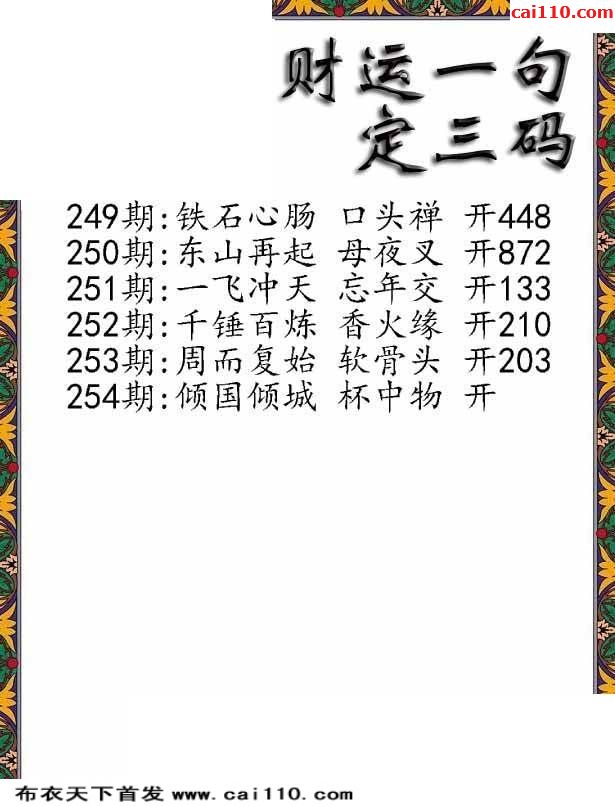 cai110.com
财运一句
定三码
249期:铁石心肠 口头禅 开448
250期:东山再起 母夜叉 开872
251期:一飞冲天 忘年交 开133
252期:千锤百炼 香火缘 开210
253期:周而复始 软骨头 开203
254期:倾国倾城 杯中物 开
布衣天下首发 www.cai110.com